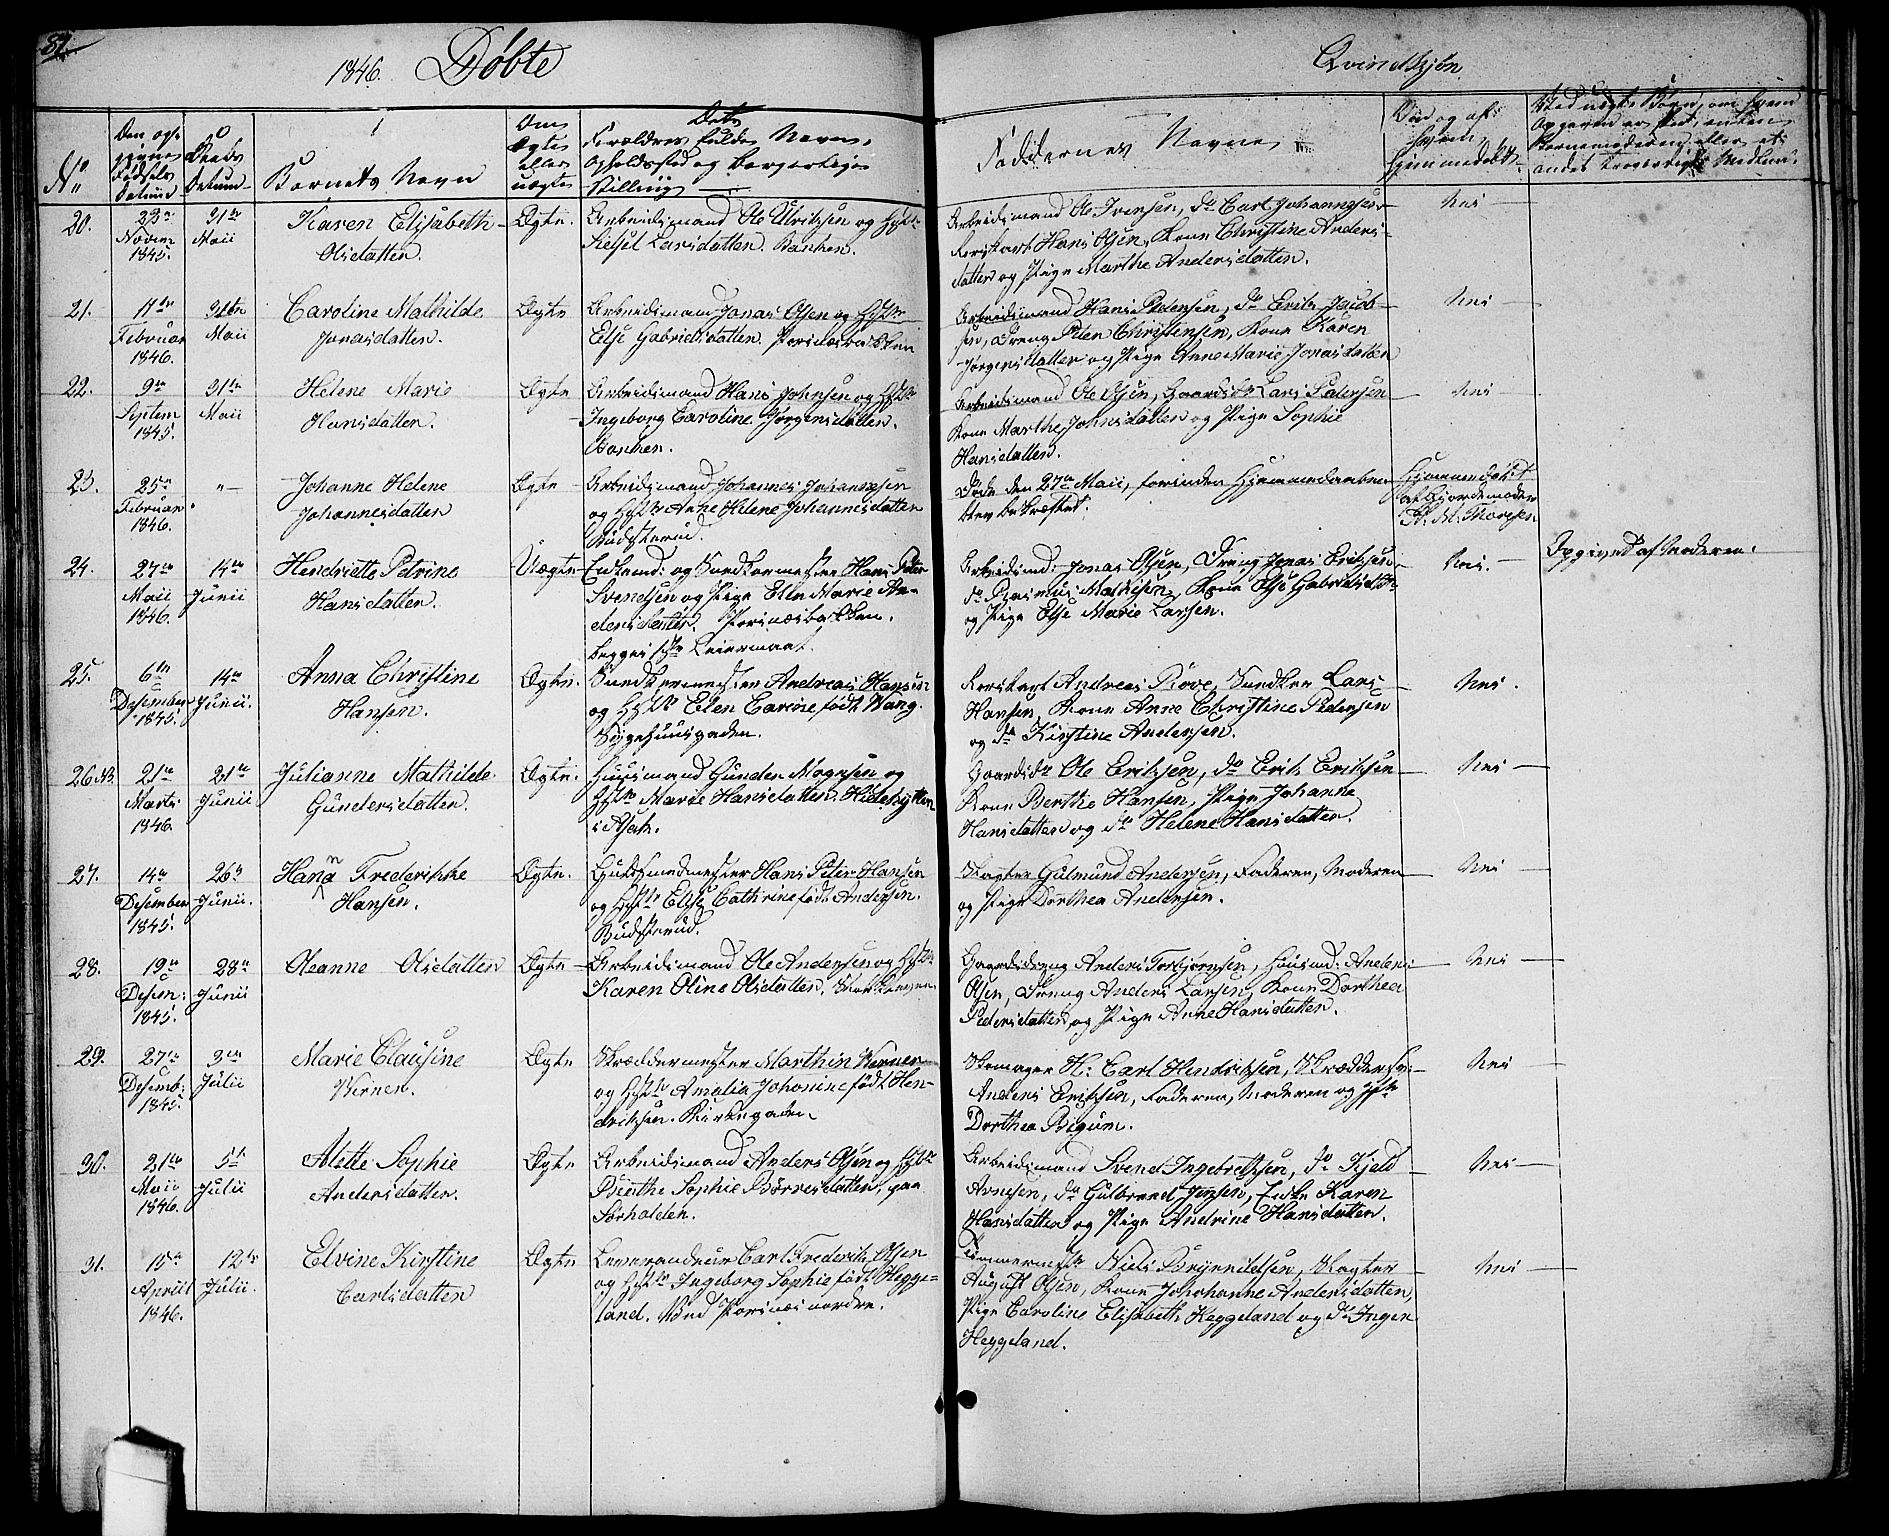 82.
1846. Döbte
Qvindekjön.
No
Den opgivne Födsels Datum
Daabs Datum
Barnets Navn
Om Ægte eller uægte
Dets Forældres fulde Navne, Opholdssted og borgerlige Stilling
Faddernes Navne
Om og af hvem hjemmedöbt.
Ved uægte Börn, om hvem Opgaven er skeet, enten Barnemoderen, eller et andet troværdigt Medium.
20.
23de Novem 1845.
31te Maii
Karen Elisabeth
Olsdatten.
Ægte.
Arbeidsmand Ole Ulrichsen og Hust:
Larsdatten. Banken.
Arbeidsmand Ole Iversen, Do Carl Johannesen
Hans Olsen, Kone Christine Anders-
datter og Pige Marthe Andersdatten.
Nei
21.
11te Februar 1846.
31te Maii
Caroline Mathilde
Jonasdatten.
Ægte
Arbeidsmand Jonas Olsen og Hstr
Else Gabrielsdatten. Porsnæsbakken
Arbeidsmand Hans Pedersen, Do Erik Jacob-
sen, Dreng Peter Christensen, Kone Karen
Jörgensdatter og Pige Anne Marie Jonasdatten
Nei
22.
9de Septem 1845.
31te Maii
Helene Marie
Hansdatten.
Ægte
Arbeidsmand Hans Johnsen og Hstr
Ingeborg Caroline Jörgensdatten.
Banken.
Arbeidsmand Ole Olsen, Gaardsbr Lars Pedersen
Kone Marthe Johnsdatten og Pige Sophie
Hansdatten.
Nei
23.
25de Februar 1846.
"
Johanne Helene
Johannesdatten
Ægte
Arbeidsmand Johannes Johannesen
og Hstr Anne Helene Johannesdatten
Budsterud.
Döde den 27de Maii, forinden Hjemmedaaben
blev bekræftet.
Hjemmedöbt
af Gjordemoder
M. Thoresen
24.
27de Maii 1846.
14de Junii
Hendriette Petrine
Hansdatten.
Uægte
Enkemd: og Hans Peter
Svendsen og Pige Elen Marie An-
dersdatter. Porsnæsbakken.
begges 1ste Leiermaal.
Arbeidsmd: Jonas Olsen, Dreng Jonas Eriksen
Do Rasmus Mathisen, Kone Else Gabrielsdtr
og Pige Else Marie Larsen.
Nei.
Opgivet af Moderen.
25.
6te Desember 1845.
14de Junii.
Anna Christine
Hansen.
Ægte.
Andreas Hansen
og Hstr Elen Carine, födt Wang.
Sygehuusgaden.
Andreas Röve, Lars
Hansen, Kone Anne Christine Pedersen
og Do Kirstine Andersen.
Nei.
26 NB.
21de Marts 1846.
21de Junii
Julianne Mathilde
Gundersdatten.
Ægte.
Huusmand Gunder Mogensen og
Hstr Marie Hansdatten. Hidehytten
i Asak.
Gaardsbr Ole Eriksen, Do Erik Eriksen
Kone Berthe Hansen, Pige Johanne
Hansdatten og Do Helene Hansdatten.
Nei
27.
14de Desember 1845.
26de Junii.
Hanna Frederikke
Hansen.
Ægte.
Guldsmedmester Hans Peter Hansen
og Hstr Elise Cathrine födt Andersen.
Budsterud.
Slagter Gulmund Andersen, Faderen, Moderen
og Pige Dorthea Andersen.
Nei
28.
19de Desem: 1845.
28de Junii
Oleanne Olsdatten
Ægte
Arbeidsmand Ole Andersen og Hstr
Karen Oline Olsdatten.
Gaardsdreng Anders Torbjörnsen, Huusmd: Anders
Olsen, Dreng Anders Larsen, Kone Dorthea
Pedersdatten, og Pige Anne Hansdatten.
Nei
29.
27de Desemb: 1845.
3die Julii
Marie Clausine
Werner.
Ægte
Skræddermester Marthin Werner
og Hstr Amalia Johanine födt Hen-
driksen. Kirkegaden.
Skomager H: Carl Hendriksen, Skrædder
Anders Eriksen, Faderen, Moderen og
Dorthea Bigum.
Nei
30.
21de Maii 1846.
5te Julii
Alette Sophie
Andersdatten.
Ægte
Arbeidsmand Anders Olsen og Hstr
Berthe Sophie Börresdatten, paa
Sörhalden.
Arbeidsmand Svend Ingebretsen, Do Kjeld
Arnesen, Do Gulbrand Jensen, Enke Karen
Hansdatten og Pige Andrine Hansdatten.
Nei
31.
15de April 1846.
12te Julii.
Elvine Kirstine
Carlsdatten
Ægte
Leverandeur Carl Frederik Olsen
og Hstr Ingeborg Sophie födt Hegge-
land. Wed Porsnæs nordre.
Tömmermstr Niels Brynnildsen, Slagter
August Olsen, Kone Johohanne Andersdatten,
Pige Caroline Elisabeth Heggeland og Do Inger
Heggeland.
Nei